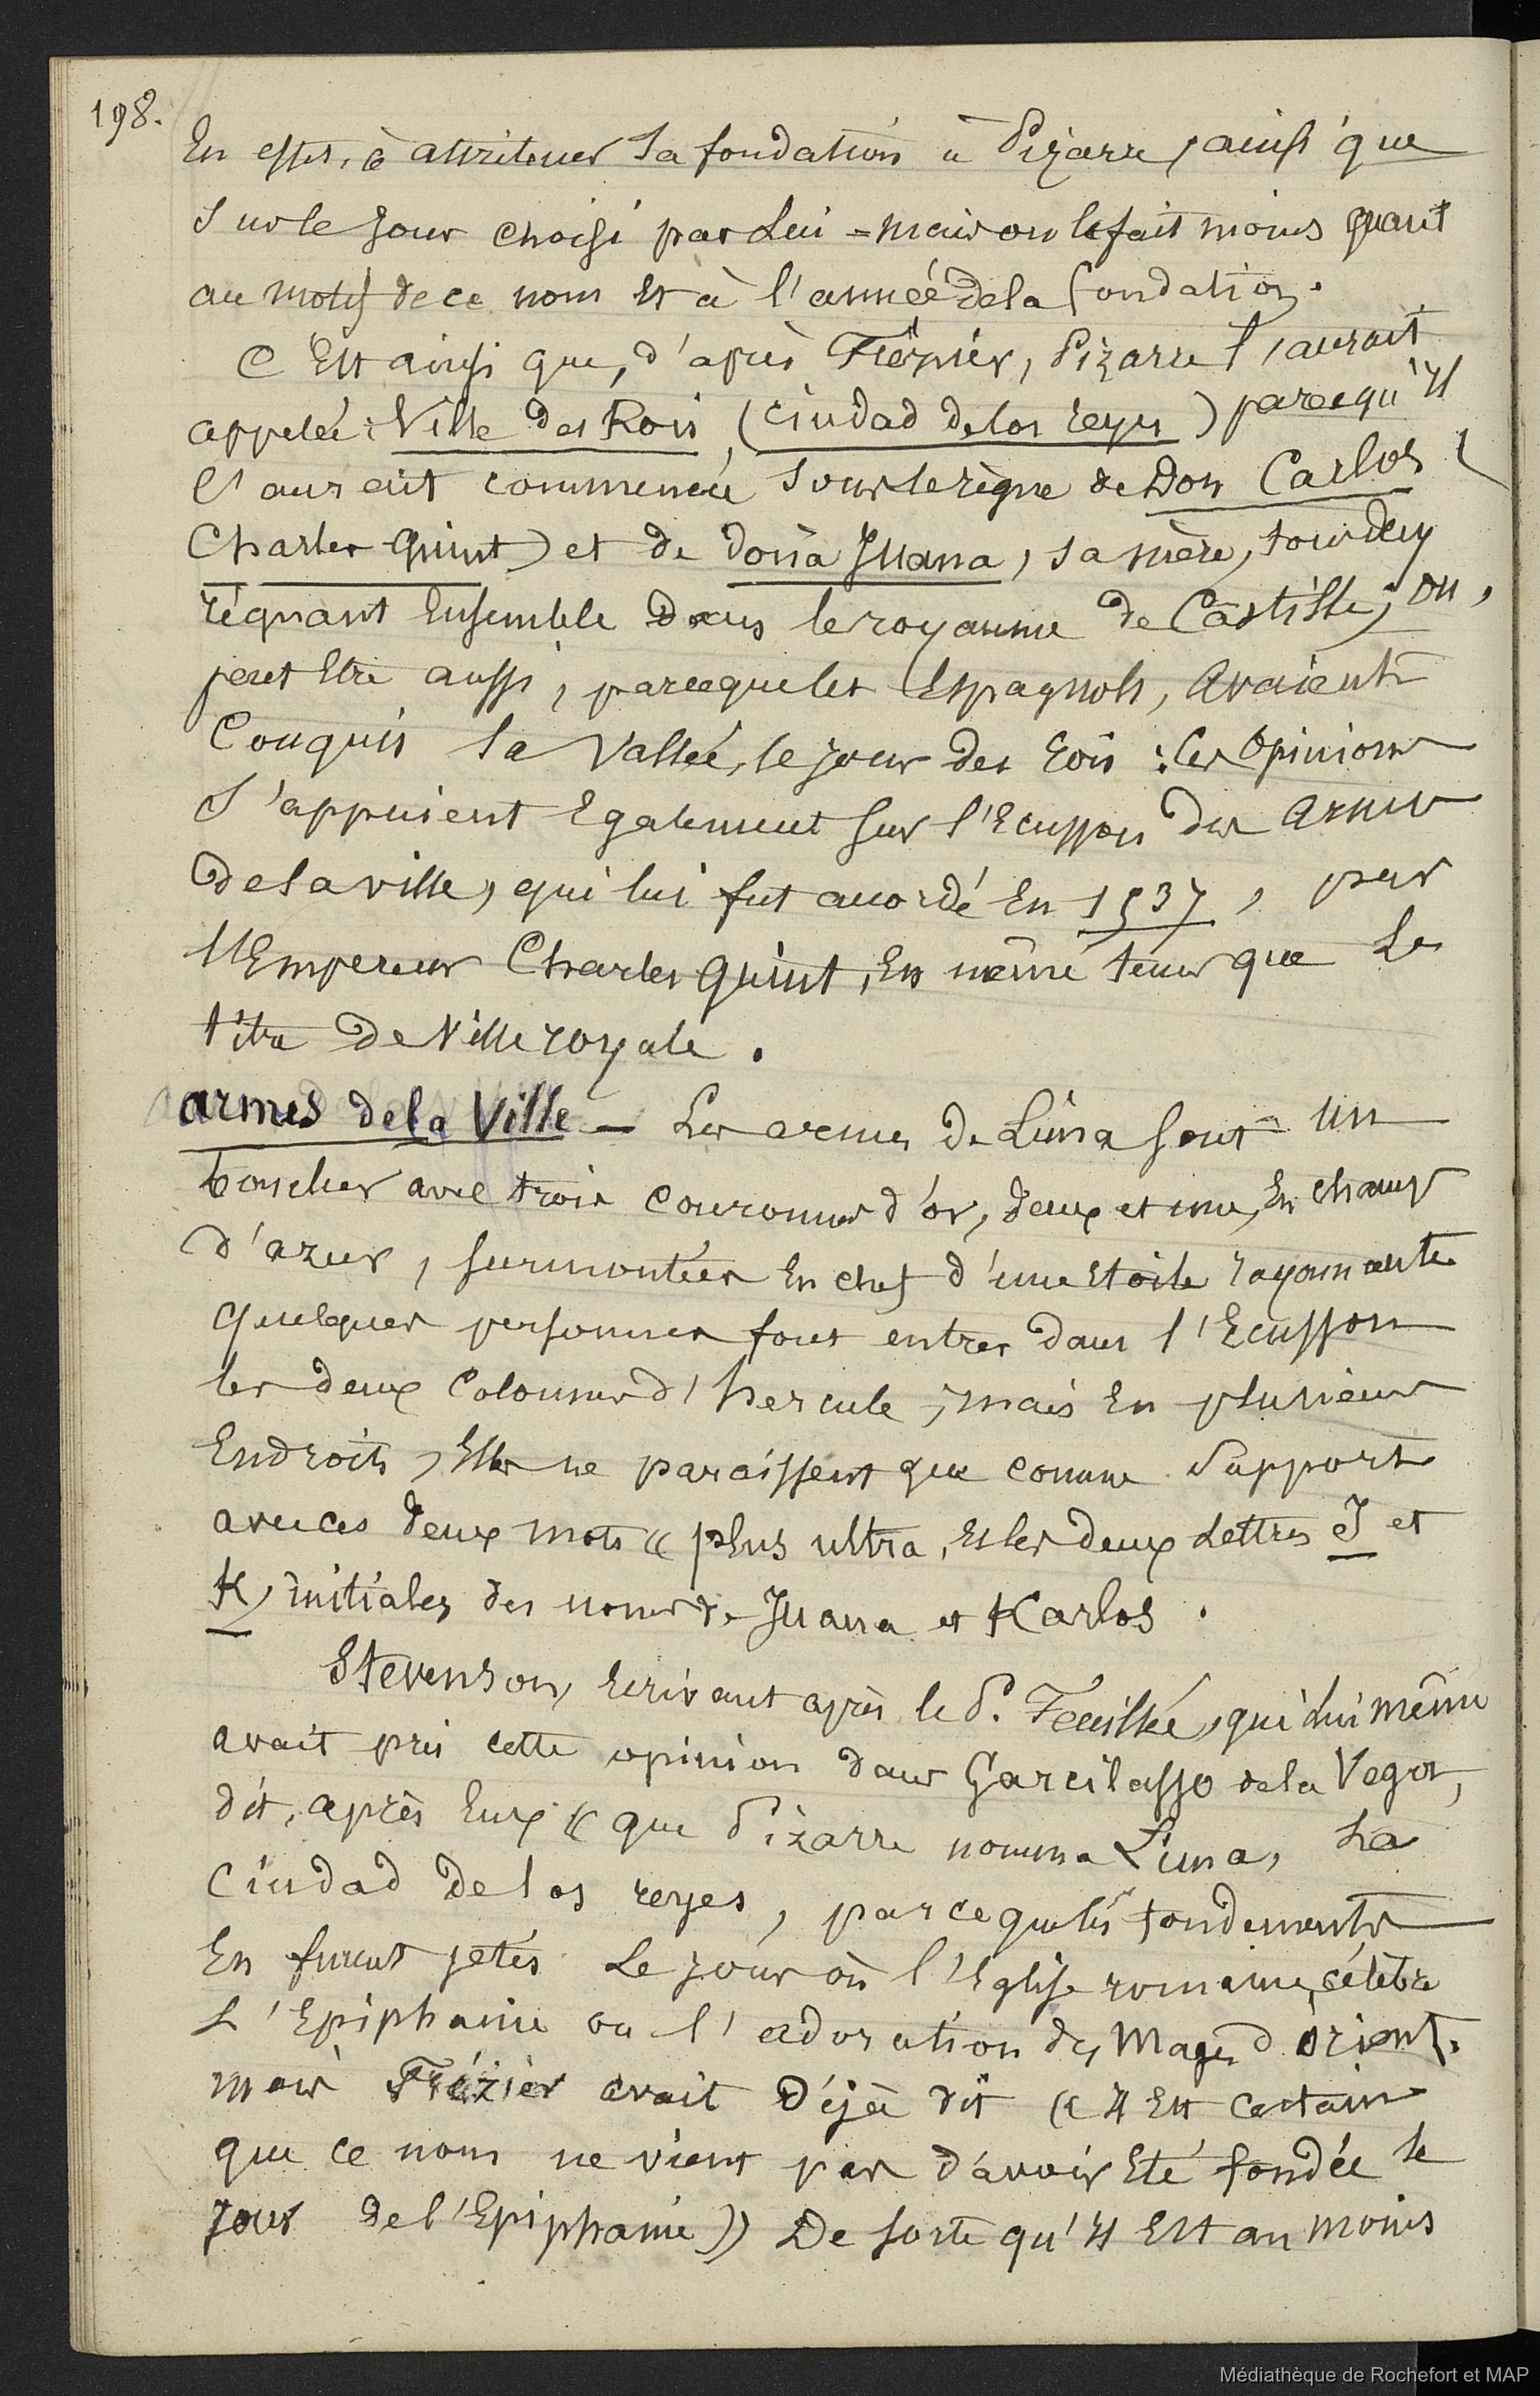 198.
En effet, à attribuer sa fondation à Pizarre, ainsi que
sur le jour choisi par Lui = mais on le fait moins quant
au motif de ce nom et à l'année de la fondation.
C'Est ainsi que, d'après Frézier, Pizarre l'aurait
appelée: Ville des Rois, (Ciudad de los reyes) parcequ'il
l'aurait commencée sous le règne de Don Carlos (
Charles-Quint) et de doña Juana, sa mère, tous deux
règnant Ensemble dans le royaume de Castille; ou,
peut Etre aussi, parceque les Espagnols, avaient
Conquis la Vallée, le jour des Rois: les opinions
s'appuient Egalement sur l'Ecusson des armes
de la ville, qui lui fut accordé En 1537, par
l'Empereur Charles Quint, En même tems que Le
titre de Ville royale.
armes de la Ville — Les armes de Lima sont un
bouclier avec trois couronnes d'or, deux et une, En champ
d'azur, surmontées En chef d'une Etoile rayonnante
quelques personnes font entrer dans l'Ecusson
les deux Colonnes d'hercule; mais En plusieurs
Endroits, Elles ne paraissent que comme Supports
avec ces deux mots « plus ultra, et les deux Lettres J et
K, initiales des noms de Juana et Karlos.
Stevenson, Ecrivant après le P. Feuillée, qui Lui même
avait pris cette opinion dans Garcilasso de la Vega,
dit, après Eux « que Pizarre nomma Lima, La
Ciudad de los reyes, parceque les fondements
En furent jetés Le jour où l'Eglise romaine, célèbre
L'Epiphanie ou l'adoration des Mages d'orient.
mais Frézier avait Déjà dit « il Est certain
que ce nom ne vient pas d'avoir Eté fondée le
jour de l'Epiphanie » De sorte qu'il Est au moins
Médiathèque de Rochefort et MAP